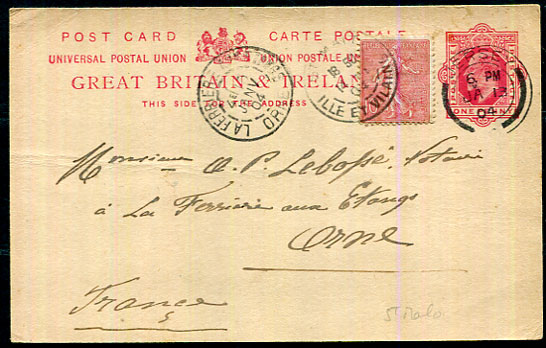 POST CARD CARTE POSTALE
UNIVERSAL POSTAL UNION UNION POSTALE
GREAT BRITAIN IRELAND
THIS SIDE FOR THE ADDRESS
LA FERRIERE ORNE
04
ILLE ET VILAINE
6 PM
JA 12
04
ONE PENNY
Monsieur A. P. Lebossé, Notaire
à La Ferrière aux Etangs
Orne
France
St Malo